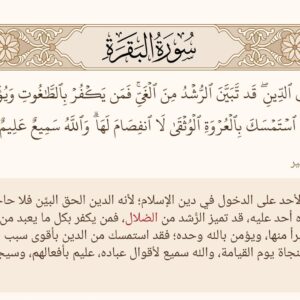 سُورَةُ البَقَرَةِ
الدِّينِ ۖ قَد تَّبَيَّنَ الرُّشْدُ مِنَ الْغَيِّ ۚ فَمَن يَكْفُرْ بِالطَّاغُوتِ
اسْتَمْسَكَ بِالْعُرْوَةِ الْوُثْقَىٰ لَا انفِصَامَ لَهَا ۗ وَاللَّهُ سَمِيعٌ عَلِيمٌ
لأحد على الدخول في دين الإسلام؛ لأنه الدين الحق البيّن فلا
أحد عليه، قد تميز الرُّشد من الضلال، فمن يكفر بكل ما يعبد من
منها، ويؤمن بالله وحده؛ فقد استمسك من الدين بأقوى سبب
يوم القيامة، والله سميع لأقوال عباده، عليم بأفعالهم،